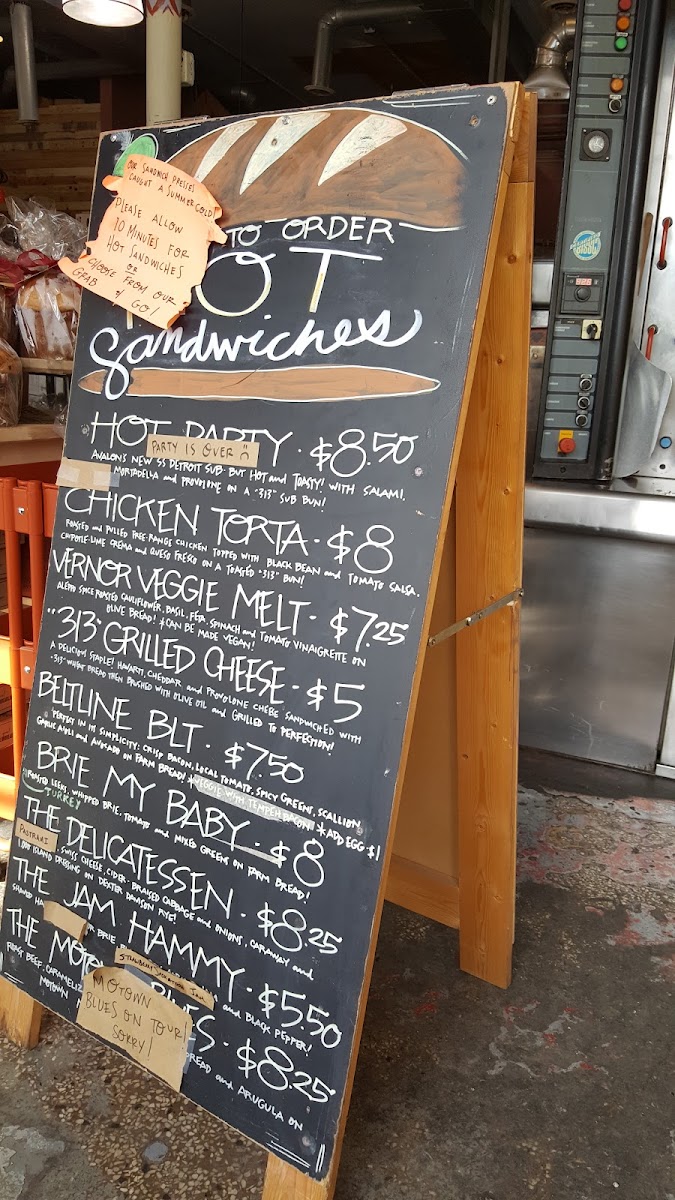 OUR SANDWICH PRESSES
CAUGHT A SUMMER COLD!
PLEASE ALLOW
10 MINUTES FOR
HOT SANDWICHES
OR
CHOOSE FROM OUR
GRAB & GO!
TO ORDER
HOT
Sandwiches
HOT PARTY · $8.50
PARTY IS OVER
AVALON'S NEW SS DETROIT SUB- BUT HOT and TOASTY! WITH SALAMI,
MORTADELLA and PROVOLONE ON A "313" SUB BUN!
CHICKEN TORTA · $8
ROASTED and PULLED FREE-RANGE CHICKEN TOPPED WITH BLACK BEAN and TOMATO SALSA.
CHIPOTLE-LIME CREMA and QUESO FRESCO ON A TOASTED "313" BUN!
VERNOR VEGGIE MELT · $7.25
ALEPPO SPICE ROASTED CAULIFLOWER, BASIL, FETA, SPINACH and TOMATO VINAIGRETTE ON
OLIVE BREAD! *CAN BE MADE VEGAN!
"313" GRILLED CHEESE · $5
A DELICIOUS STAPLE! HAVARTI, CHEDDAR and PROVOLONE CHEESE SANDWICHED WITH
"313" WHEAT BREAD THEN BRUSHED WITH OLIVE OIL and GRILLED TO PERFECTION!
BELTLINE BLT · $7.50
PERFECT IN ITS SIMPLICITY: CRISP BACON, LOCAL TOMATO, SPICY GREENS, SCALLION
GARLIC AIOLI and AVOCADO ON FARM BREAD! *VEGGIE WITH TEMPEH BACON *ADD EGG $1
BRIE MY BABY · $8
ROASTED LEEKS, WHIPPED BRIE, TOMATO and MIXED GREENS ON FARM BREAD!
TURKEY
THE DELICATESSEN · $8.25
PASTRAMI
, SWISS CHEESE, CIDER-BRAISED CABBAGE and ONIONS, CARAWAY and
1000 ISLAND DRESSING ON DEXTER DAVISON RYE!
THE JAM HAMMY · $5.50
SHAVED HAM OR BRIE
STRAWBERRY JAM
and BLACK PEPPER!
THE MOTOWN BLUES · $8.25
MOTOWN
BLUES ON TOUR!
SORRY!
ROAST BEEF, CARAMELIZ
SPREAD and ARUGULA ON
MOTOWN